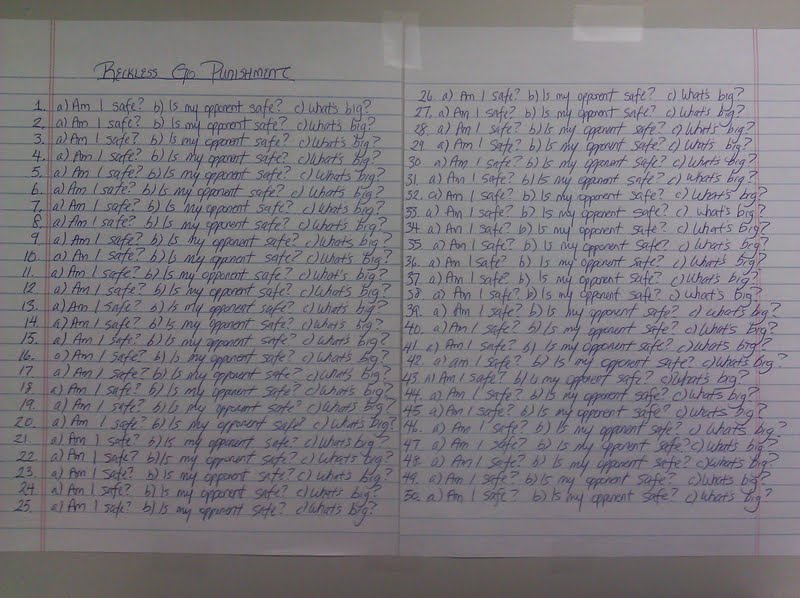 Reckless Go Punishment
1. a) Am I safe? b) Is my opponent safe? c) What's big?
2. a) Am I safe? b) Is my opponent safe? c) What's big?
3. a) Am I safe? b) Is my opponent safe? c) What's big?
4. a) Am I safe? b) Is my opponent safe? c) What's big?
5. a) Am I safe? b) Is my opponent safe? c) What's big?
6. a) Am I safe? b) Is my opponent safe? c) What's big?
7. a) Am I safe? b) Is my opponent safe? c) What's big?
8. a) Am I safe? b) Is my opponent safe? c) What's big?
9. a) Am I safe? b) Is my opponent safe? c) What's big?
10. a) Am I safe? b) Is my opponent safe? c) What's big?
11. a) Am I safe? b) Is my opponent safe? c) What's big?
12. a) Am I safe? b) Is my opponent safe? c) What's big?
13. a) Am I safe? b) Is my opponent safe? c) What's big?
14. a) Am I safe? b) Is my opponent safe? c) What's big?
15. a) Am I safe? b) Is my opponent safe? c) What's big?
16. a) Am I safe? b) Is my opponent safe? c) What's big?
17. a) Am I safe? b) Is my opponent safe? c) What's big?
18. a) Am I safe? b) Is my opponent safe? c) What's big?
19. a) Am I safe? b) Is my opponent safe? c) What's big?
20. a) Am I safe? b) Is my opponent safe? c) What's big?
21. a) Am I safe? b) Is my opponent safe? c) What's big?
22. a) Am I safe? b) Is my opponent safe? c) What's big?
23. a) Am I safe? b) Is my opponent safe? c) What's big?
24. a) Am I safe? b) Is my opponent safe? c) What's big?
25. a) Am I safe? b) Is my opponent safe? c) What's big?
26. a) Am I safe? b) Is my opponent safe? c) What's big?
27. a) Am I safe? b) Is my opponent safe? c) What's big?
28. a) Am I safe? b) Is my opponent safe? c) What's big?
29. a) Am I safe? b) Is my opponent safe? c) What's big?
30. a) Am I safe? b) Is my opponent safe? c) What's big?
31. a) Am I safe? b) Is my opponent safe? c) what's big?
32. a) Am I safe? b) Is my opponent safe? c) What's big?
33. a) Am I safe? b) Is my opponent safe? c) What's big?
34. a) Am I safe? b) Is my opponent safe? c) What's big?
35. a) Am I safe? b) Is my opponent safe? c) What's big?
36. a) Am I safe? b) Is my opponent safe? c) What's big?
37. a) Am I safe? b) Is my opponent safe? c) What's big?
38. a) Am I safe? b) Is my opponent safe? c) What's big?
39. a) Am I safe? b) Is my opponent safe? c) What's big?
40. a) Am I safe? b) Is my opponent safe? c) What's big?
41. a) Am I safe? b) Is my opponent safe? c) What's big?
42. a) am I safe? b) Is my opponent safe? c) What's big?
43. a) Am I safe? b) Is my opponent safe? c) What's big?
44. a) Am I safe? b) Is my opponent safe? c) What's big?
45. a) Am I safe? b) Is my opponent safe? c) What's big?
46. a) Am I safe? b) Is my opponent safe? c) What's big?
47. a) Am I safe? b) Is my opponent safe? c) What's big?
48. a) Am I safe? b) Is my opponent safe? c) What's big?
49. a) Am I safe? b) Is my opponent safe? c) What's big?
50. a) Am I safe? b) Is my opponent safe? c) What's big?